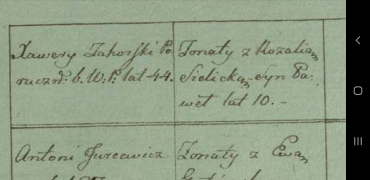 Xawery Zahorski Po
ruczn: b. W. P. lat 44.
Żonaty z Rozalią
Sielicką - syn Pa:
weł lat 10. -
Antoni Jurewicz
Żonaty z Ewą